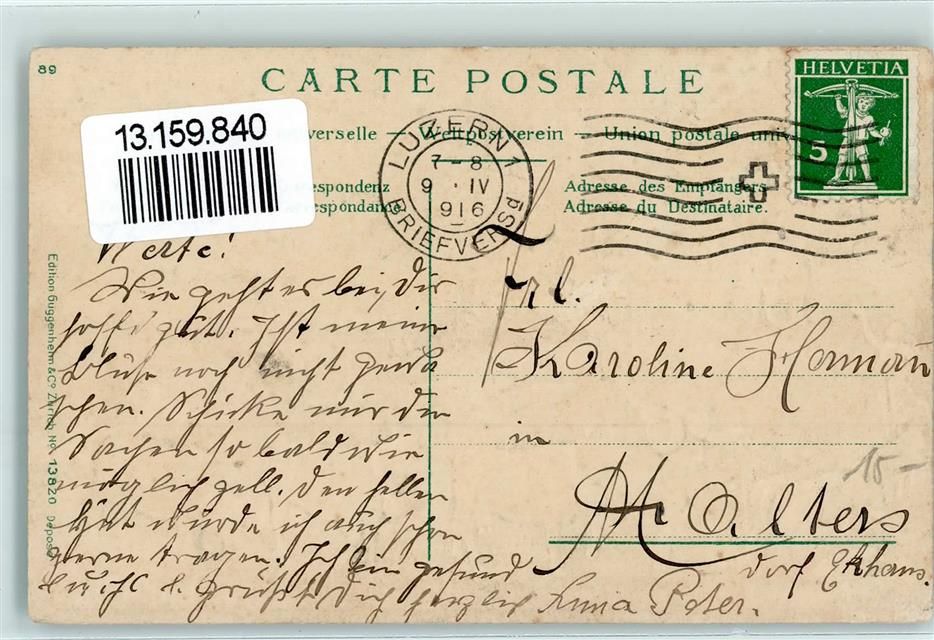 89
CARTE POSTALE
HELVETIA
5
13.159.840
verselle — Weltpostverein — Union postale univ
respondenz
respondance
Adresse des Empfängers
Adresse du Destinataire.
LUZERN 1
7-8
9 · IV
916
BRIEFVERSd
Werte!
Wie geht es bei Dir
hoffe gut. Ist meine
Bluse noch nicht gewa
schen. Schicke mir die
Sachen so bald wie
möglich gell. Den hellen
Hut würde ich auch schon
gerne tragen. Ich bin gesund
grüßt Dich herzlich Anna Peter.
Frl.
Karoline Herman
in
Malters
dorf Ekhaus.
15-
Edition Guggenheim & Co Zürich No. 13820 Deposé